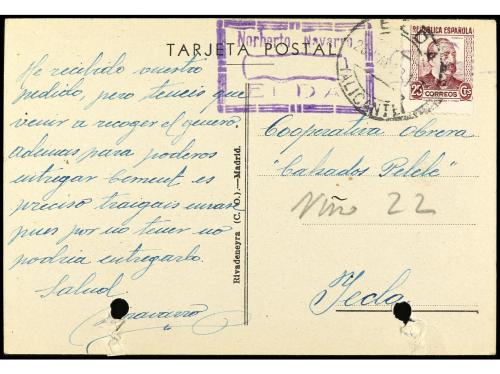 TARJETA POSTAL
Norberto Navarro
ELDA
ELDA
(ALICANTE)
REPÚBLICA ESPAÑOLA
25 CORREOS Cts
He recibido vuestro
pedido, pero teneis que
venir a recoger el genero.
Ademas para poderos
entregar Cement es
preciso traigais envases
pues por no tener no
podria entregarlo.
Salud.
Navarro
Rivadeneyra (C. O.).—Madrid.
Cooperativa Obrera
"Calzados Pelele"
Niño 22
Yecla